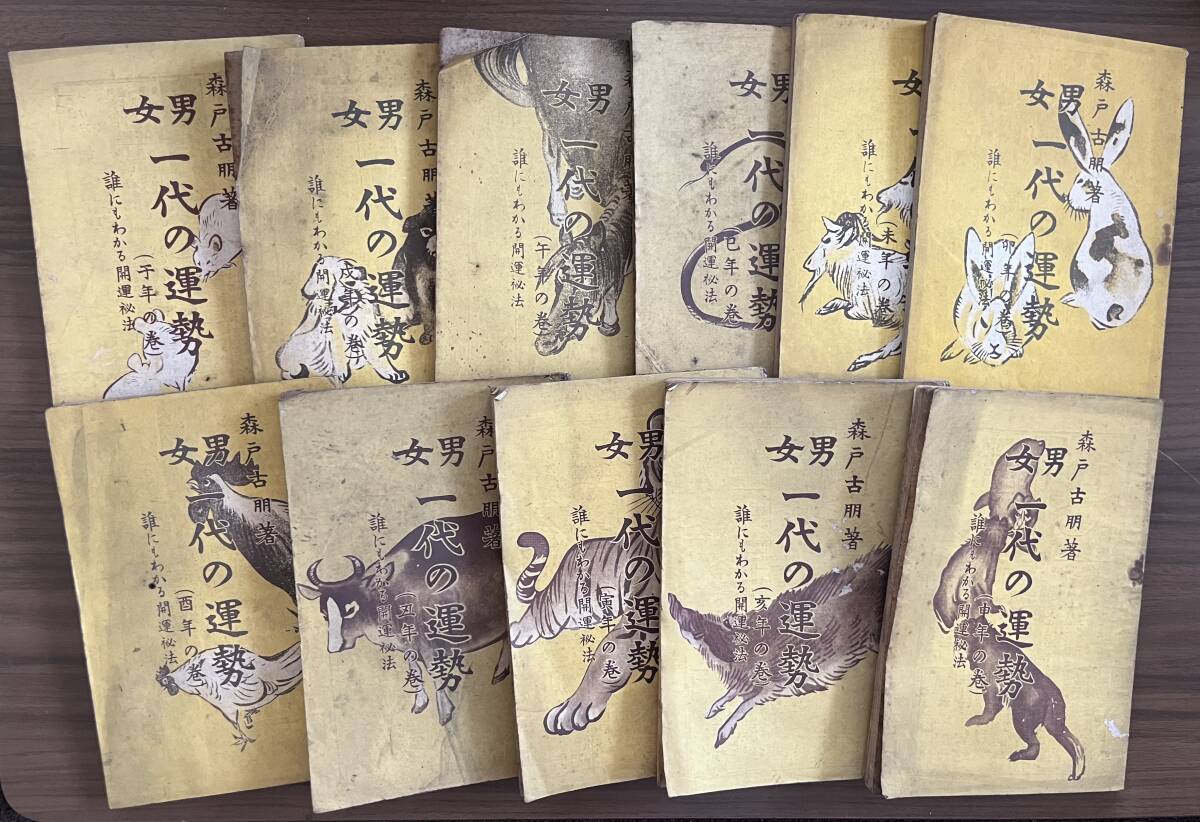 森戸古朋著
男女
一代の運勢
(子年の巻)
誰にもわかる開運秘法
森戸古朋著
男女
一代の運勢
(戌年の巻)
誰にもわかる開運秘法
男女
一代の運勢
(午年の巻)
誰にもわかる開運秘法
男女
一代の運勢
(巳年の巻)
誰にもわかる開運秘法
女
(未年の巻)
誰にもわかる開運秘法
森戸古朋著
男女
一代の運勢
(卯年の巻)
誰にもわかる開運秘法
森戸古朋著
男女
一代の運勢
(酉年の巻)
誰にもわかる開運秘法
森戸古朋著
男女
一代の運勢
(丑年の巻)
誰にもわかる開運秘法
男女
一代の運勢
(寅年の巻)
誰にもわかる開運秘法
森戸古朋著
男女
一代の運勢
(亥年の巻)
誰にもわかる開運秘法
森戸古朋著
男女
一代の運勢
(申年の巻)
誰にもわかる開運秘法